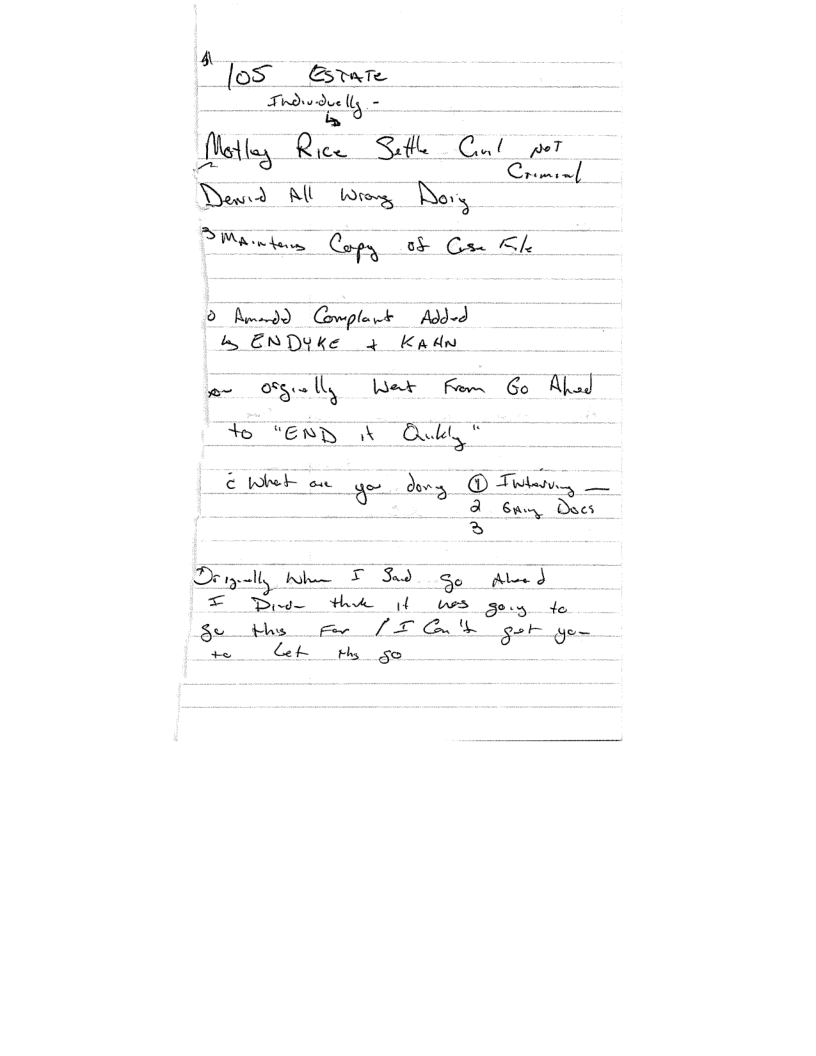 105 ESTATE
Individually -
↳
Motley Rice Settle Civil NOT
Criminal
Denied All Wrong Doing
3 MAintains Copy of Case File
Amendd Complaint Added
↳ ENDYKE + KAHN
orginally Went From Go Ahead
to "END it Quikly"
What are you doing ① Interving —
2 GAing Docs
3
Originally When I Said go Ahead
I Didn think it was going to
go this Far / I Can't get you
to Let this go